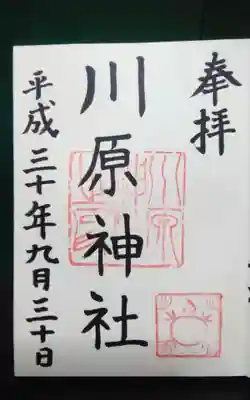 奉拝
川原神社
平成三十年九月三十日